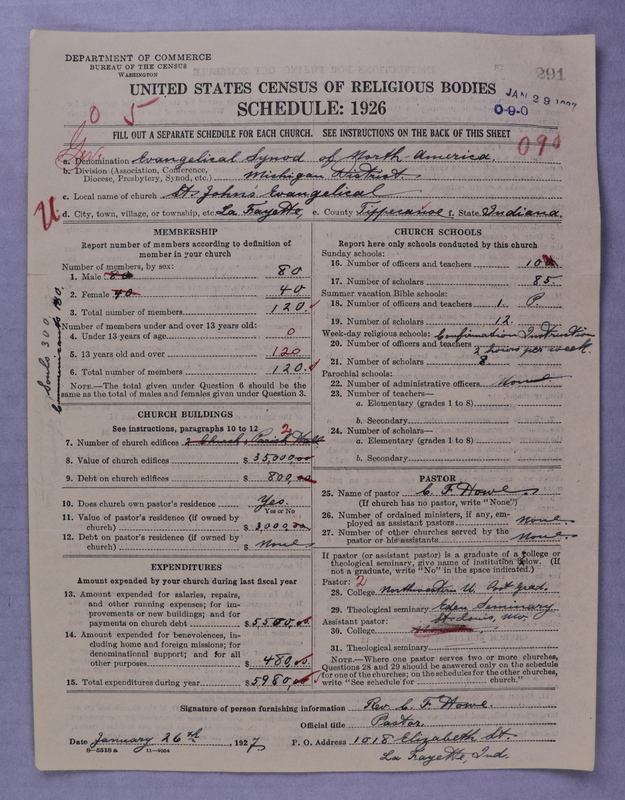 DEPARTMENT OF COMMERCE
BUREAU OF THE CENSUS
WASHINGTON
291
UNITED STATES CENSUS OF RELIGIOUS BODIES
JAN 29 1927
SCHEDULE: 1926
0-9-0
0 5
FILL OUT A SEPARATE SCHEDULE FOR EACH CHURCH. SEE INSTRUCTIONS ON THE BACK OF THIS SHEET
Ger.
090
a. Denomination Evangelical Synod of North America
b. Division (Association, Conference, Diocese, Presbytery, Synod, etc.) Michigan District
c. Local name of church St. Johns Evangelical
d. City, town, village, or township, etc. La Fayette, e. County Tippecanoe f. State Indiana.
MEMBERSHIP
Report number of members according to definition of
member in your church
Number of members, by sex:
1. Male 80 80
2. Female 40 40
3. Total number of members 120
Number of members under and over 13 years old:
4. Under 13 years of age 0
5. 13 years old and over 120
6. Total number of members 120
NOTE.—The total given under Question 6 should be the
same as the total of males and females given under Question 3.
Souls 300
Communicants 180.
CHURCH BUILDINGS
See instructions, paragraphs 10 to 12
2
7. Number of church edifices 2 Church & Parish Hall
8. Value of church edifices $ 35,000.00
9. Debt on church edifices $ 800.00
10. Does church own pastor's residence Yes
Yes or No
11. Value of pastor's residence (if owned by
church) $ 3,000.00
12. Debt on pastor's residence (if owned by
church) $ None
EXPENDITURES
Amount expended by your church during last fiscal year
13. Amount expended for salaries, repairs,
and other running expenses; for im-
provements or new buildings; and for
payments on church debt $ 5500.00
14. Amount expended for benevolences, in-
cluding home and foreign missions; for
denominational support; and for all
other purposes $ 480.00
15. Total expenditures during year $ 5980.00
CHURCH SCHOOLS
Report here only schools conducted by this church
Sunday schools:
16. Number of officers and teachers 10
17. Number of scholars 85.
Summer vacation Bible schools:
18. Number of officers and teachers 1. P.
19. Number of scholars 12.
Week-day religious schools: Confirmation Instruction
20. Number of officers and teachers 2 hours per week.
21. Number of scholars 8
Parochial schools:
22. Number of administrative officers None
23. Number of teachers—
a. Elementary (grades 1 to 8)
b. Secondary
24. Number of scholars—
a. Elementary (grades 1 to 8)
b. Secondary
PASTOR
25. Name of pastor C. F. Howe
(If church has no pastor, write "None")
26. Number of ordained ministers, if any, em-
ployed as assistant pastors None
27. Number of other churches served by the
pastor or his assistants None
If pastor (or assistant pastor) is a graduate of a college or
theological seminary, give name of institution below. (If
not a graduate, write "No" in the space indicated.)
Pastor: 2
28. College Northwestern U. Post Grad.
29. Theological seminary Eden Seminary
Assistant pastor: St. Louis, Mo.
30. College
31. Theological seminary
NOTE.—Where one pastor serves two or more churches,
Questions 28 and 29 should be answered only on the schedule
for one of the churches; on the schedules for the other churches,
write "See schedule for church."
Signature of person furnishing information Rev. C. F. Howe.
Official title Pastor.
Date January 26th, 1927 P. O. Address 1018 Elizabeth St.
8—5518a 11—9354
La Fayette, Ind.